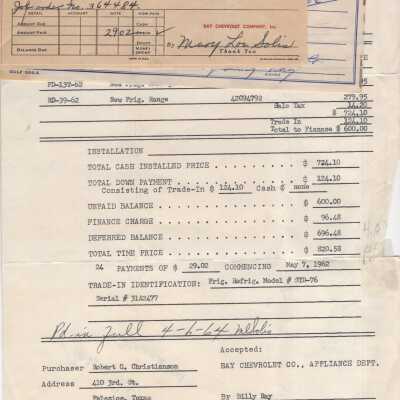 Job order No. 364484.
DETAIL ACCOUNT NOTE HOW PAID
AMOUNT DUE CASH
AMOUNT PAID 2902 CHECK
BALANCE DUE MONEY ORDER
BAY CHEVROLET COMPANY, Inc.
By Mary Lou Solis
Thank You
GULF 5026-A
FD-13T-62 New Frig. Range
RD-39-62 New Frig. Range 42094792 279.95
Sale Tax 14.20
$ 724.10
Trade In 124.10
Total to Finance $ 600.00
INSTALLATION
TOTAL CASH INSTALLED PRICE . . . . . . . . . $ 724.10
TOTAL DOWN PAYMENT . . . . . . . . . . . . . $ 124.10
Consisting of Trade-In $ 124.10 Cash $ none
UNPAID BALANCE . . . . . . . . . . . . . . . $ 600.00
FINANCE CHARGE . . . . . . . . . . . . . . . $ 96.48
DEFERRED BALANCE . . . . . . . . . . . . . . $ 696.48
TOTAL TIME PRICE . . . . . . . . . . . . . . $ 820.58
24 PAYMENTS OF $ 29.02 COMMENCING May 7, 1962
TRADE-IN IDENTIFICATION: Frig. Refrig. Model # SYD-76
Serial # 31A2477
Pd in Full 4-6-64 MSolis
Accepted:
Purchaser Robert C. Christianson BAY CHEVROLET CO., APPLIANCE DEPT.
Address 410 3rd. St.
Palacios, Texas By Billy Bay